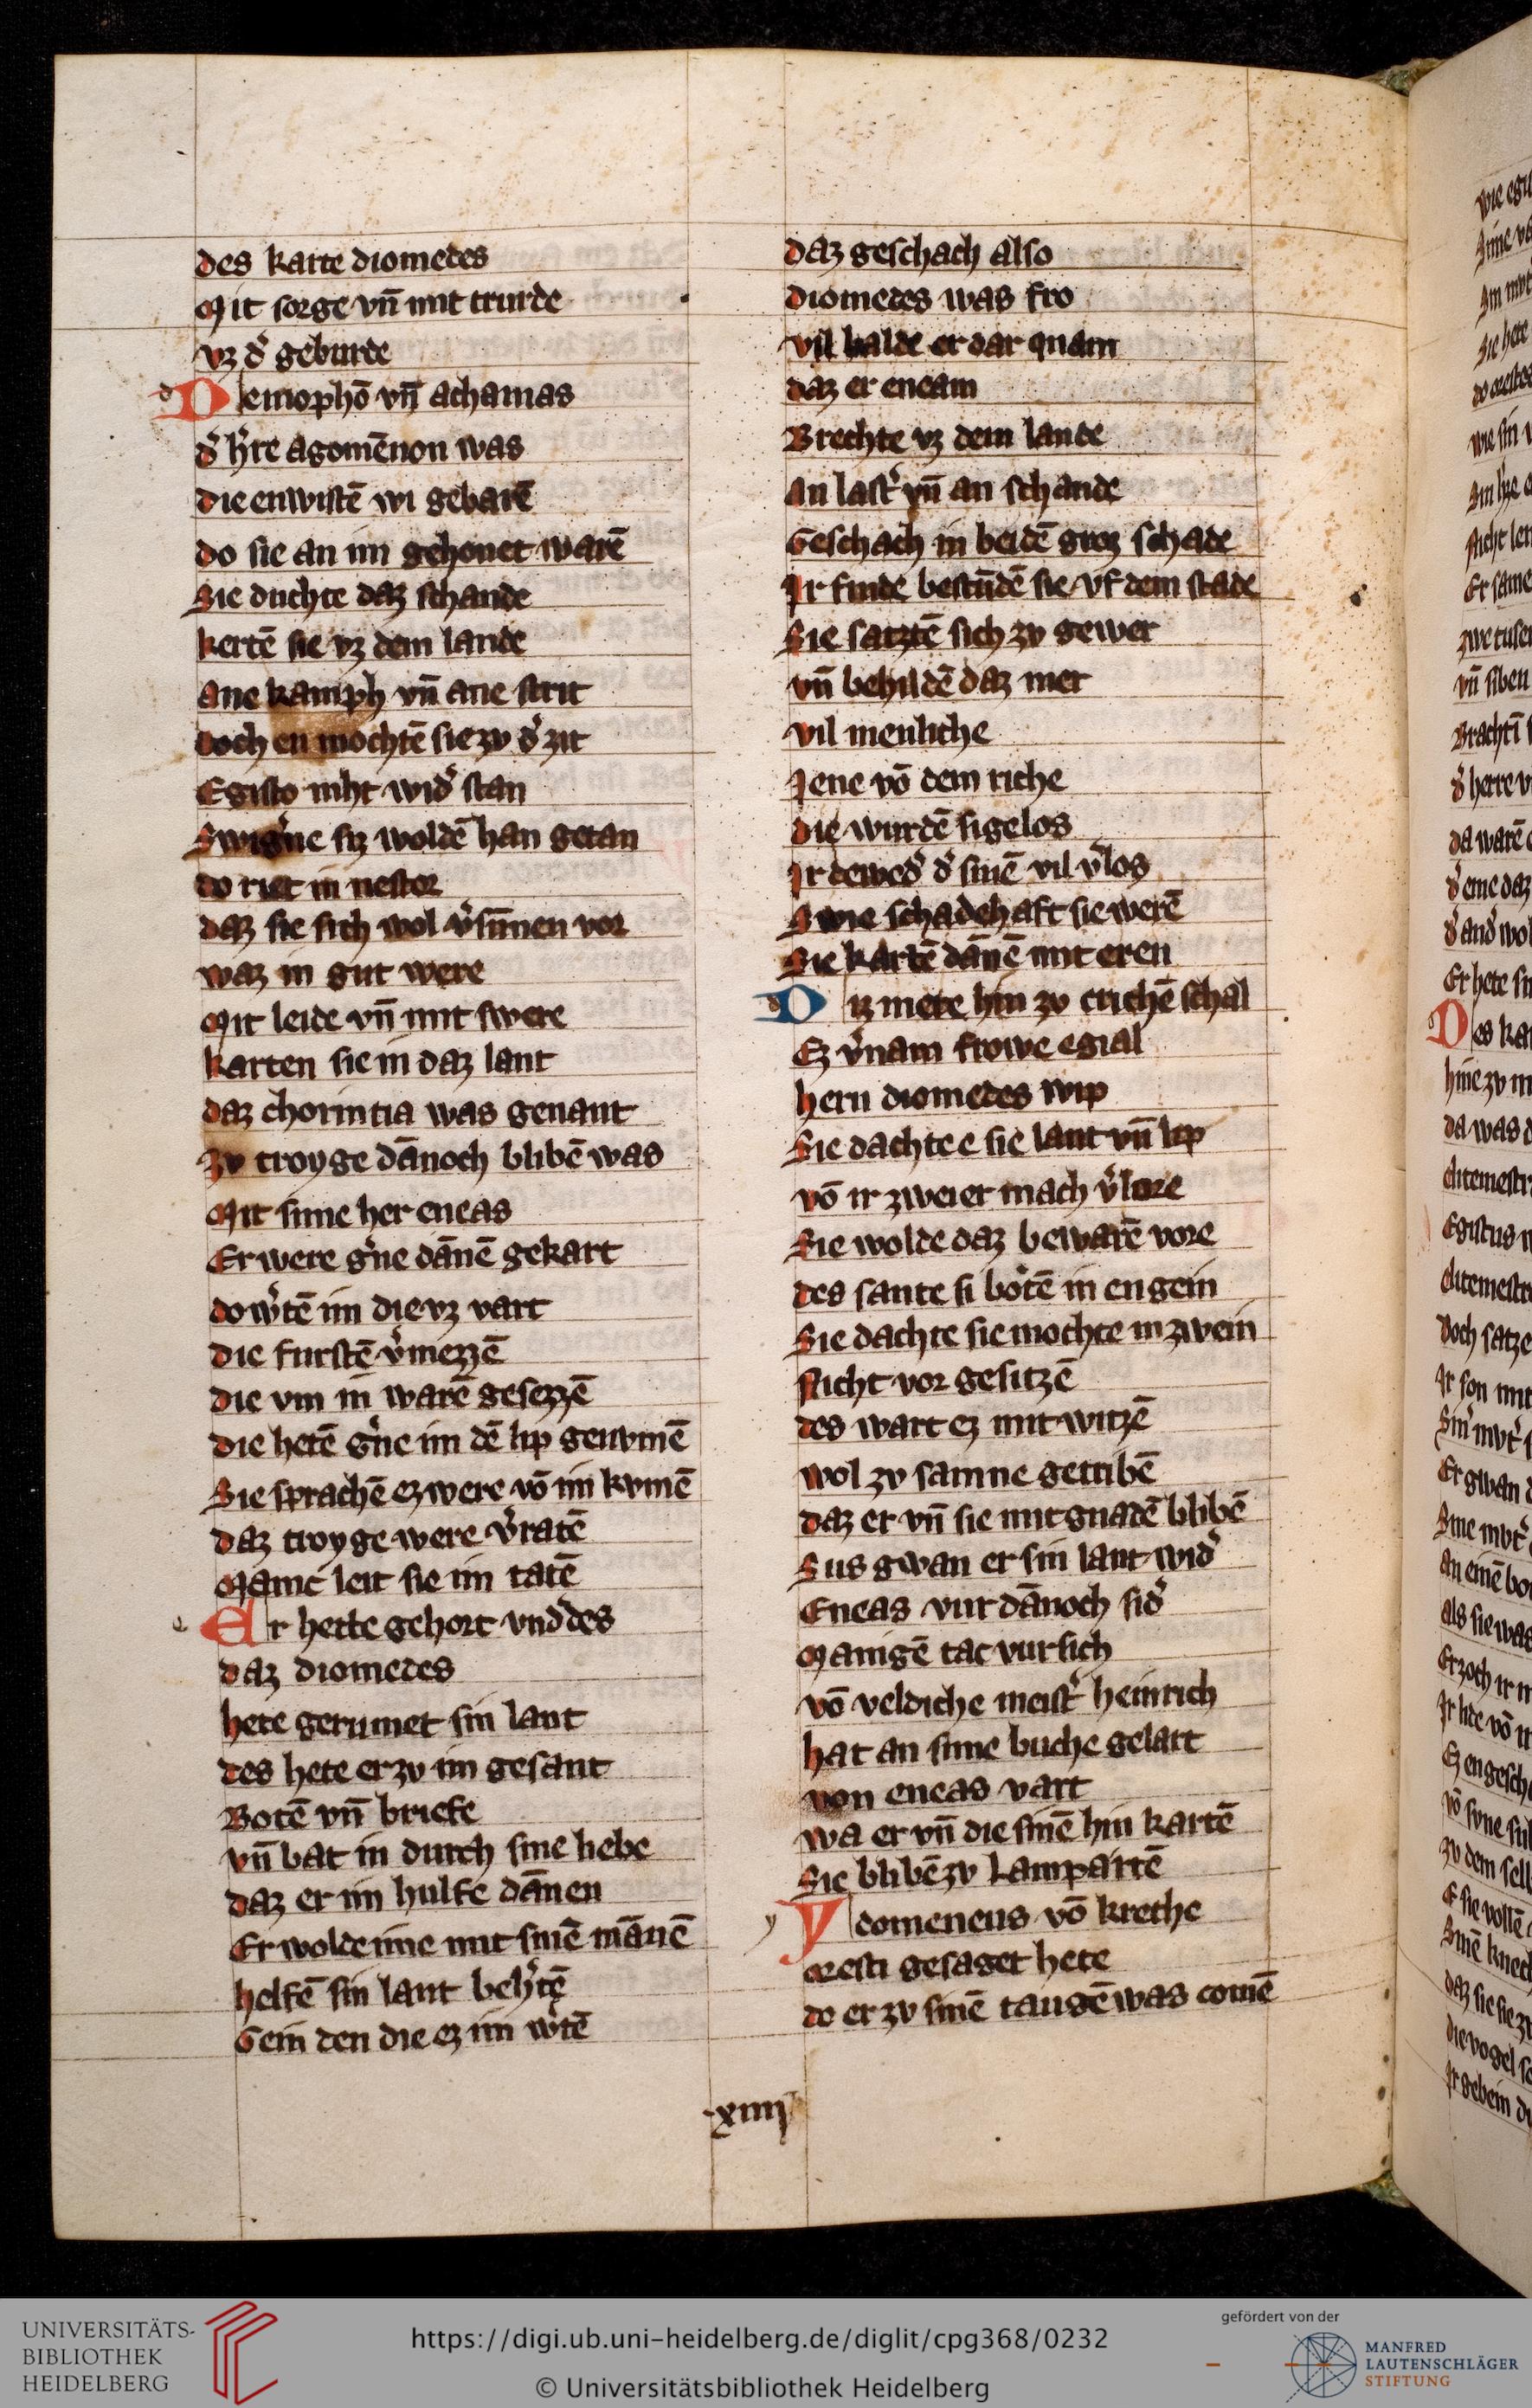 des karte diomedes
Mit sorge vn̄ mit trurde
vz d̛ geburde
Demophō vn̄ achamas
d̛ h̛re agomēnon was
die enwistē wi gebarē
do sie an im gehonet warē
Sie duchte daz schande
kertē sie vz dem lande
ane kamph vn̄ ane strit
doch en mochtē sie zv d̛ zit
Egisto niht wid̛ stan
Swig̛ne siz woldē han getan
do riet in nestor
daz sie sich wol v̛sūnnen vor
waz in gut were
Mit leide vn̄ mit swere
karten sie in daz lant
daz chorintia was genant
zv troyge dānoch blibē was
Mit sime her eneas
Er were g̛ne dānē gekart
do w̛tē im die vz vart
die furstē v̛mezzē
die vm in warē gesezzē
die hetē g̛ne im dē lip genvmē
Sie sprachē ez were vō im kvmē
daz troyge were v̛ratē
Manic leit sie im tatē
Er hette gehort vnd des
daz diomedes
hete gerumet sin lant
des hete er zv im gesant
Botē vn̄ briefe
vn̄ bat in durch sine liebe
daz er im hulfe dānnen
Er wolde ime mit sinē mānē
helfē sin lant beh̛tē
Gein den die ez im w̛tē
daz geschach also
diomedes was fro
vil balde er dar quam
daz er eneam
Brechte vz dem lande
an last̛ vn̄ an schande
Geschach in beidē groz schade
Ir finde bestūdē sie vf dem stade
Sie satztē sich zv gewer
vn̄ behildē daz mer
vil menliche
Jene vō dem riche
die wurdē sigelos
Ir dewed̛ d̛ sinē vil v̛los
Swie schadehaft sie werē
Sie kartē dānē mit eren
Diz mere hin zv crichē schal
Ez v̛nam frowe egial
hern diomedes wip
Sie dachte e sie lant vn̄ lip
vō ir zweier mach v̛lore
Sie wolde daz bewarē vore
des sante si botē in engein
Sie dachte sie mochte in zwein
Nicht vor gesitzē
des wart ez mit witzē
wol zv samne getribē
daz er vn̄ sie mit gnadē blibē
Sus gwan er sin lant wid̛
Eneas vur dānoch sid̛
Manigē tac vur sich
vō veldiche meist̛ heinrich
hat an sime buche gelart
von eneas vart
wa er vn̄ die sinē hin kartē
Sie blibē zv Lampartē
Ydomeneus vō krethe
oresti gesaget hete
do er zv sinē taugē was comē
xiiij
UNIVERSITÄTS-
BIBLIOTHEK
HEIDELBERG
https://digi.ub.uni-heidelberg.de/diglit/cpg368/0232
© Universitätsbibliothek Heidelberg
gefördert von der
MANFRED
LAUTENSCHLÄGER
STIFTUNG